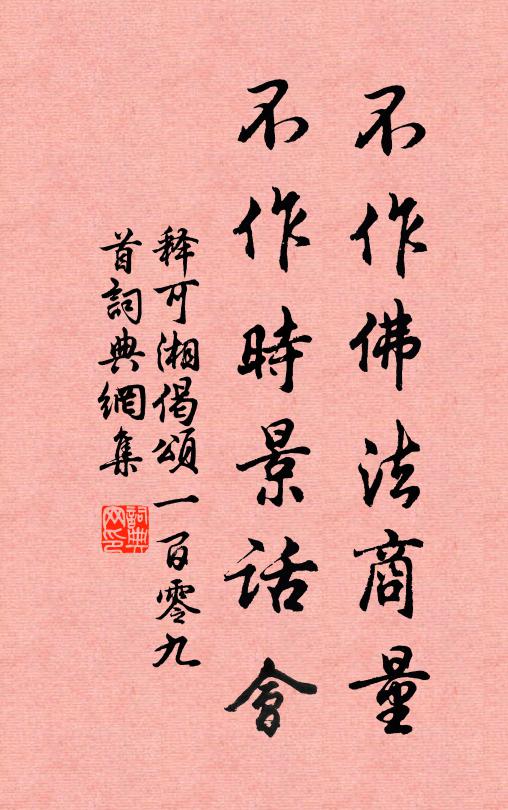 不作佛法商量
不作時景話會
释可湘偈頌一百零九
首詞典網集
詞典网印